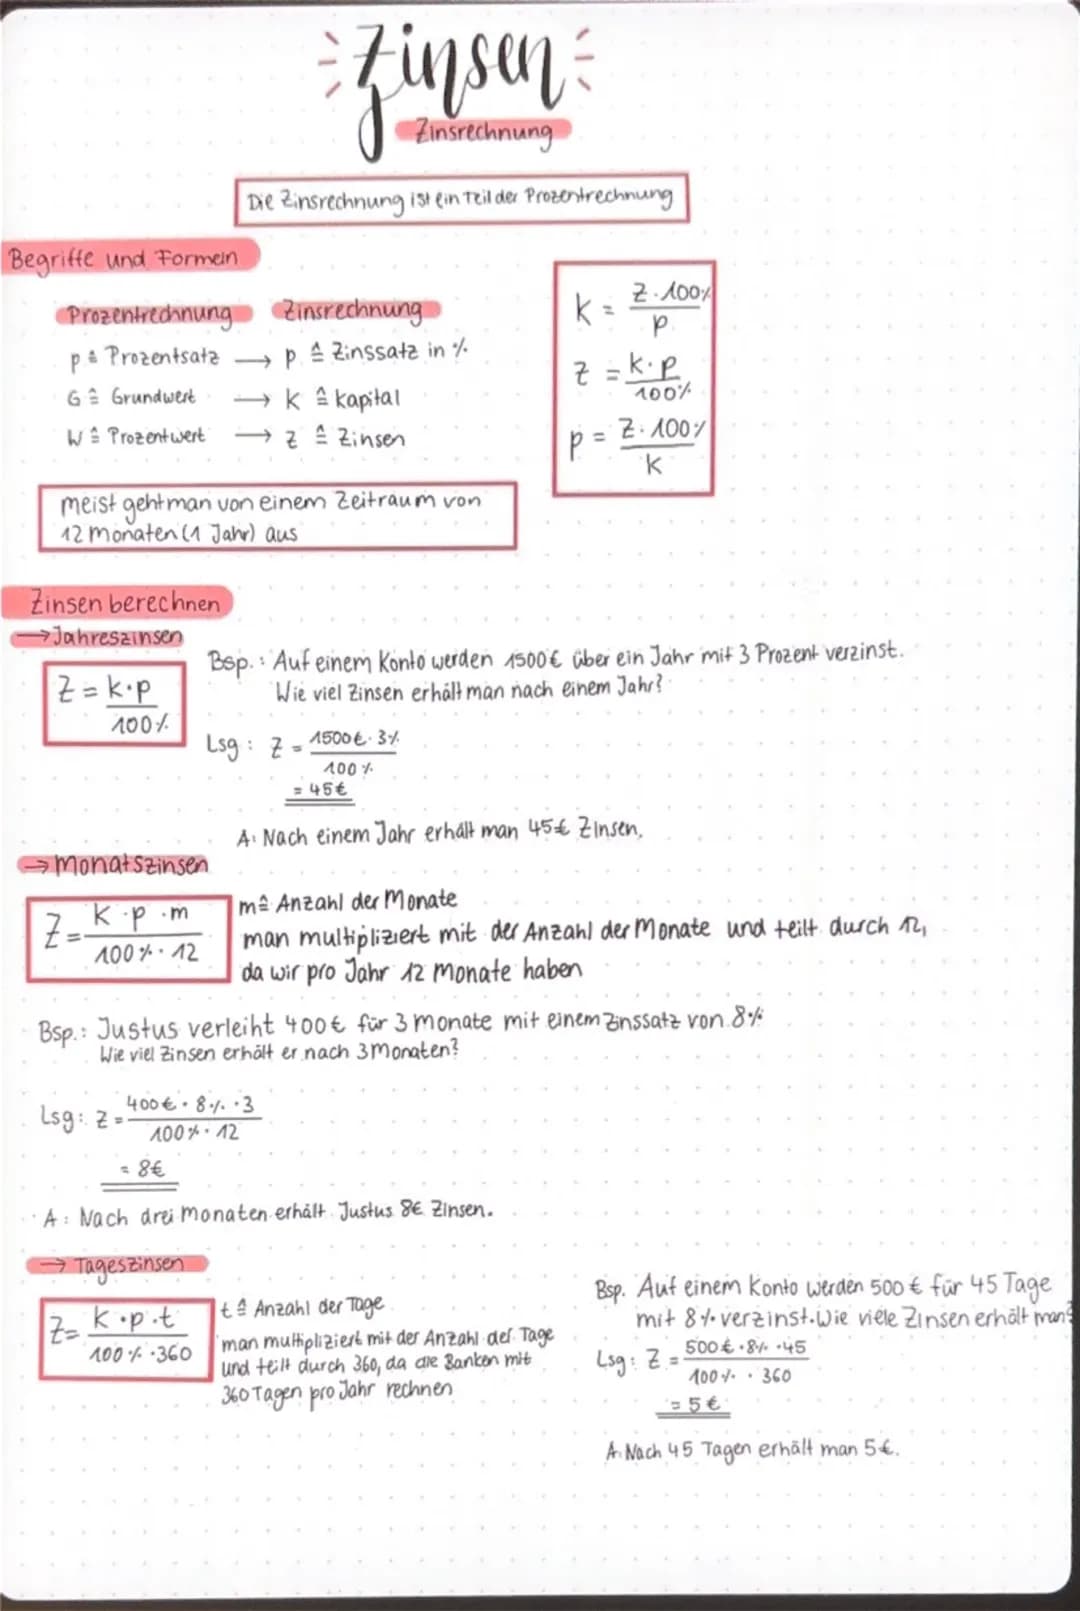 Zinsen
Zinsrechnung
Die Zinsrechnung ist ein Teil der Prozentrechnung
Begriffe und Formeln
Prozentrechnung Zinsrechnung
p ≙ Prozentsatz → p ≙ Zinssatz in %
G ≙ Grundwert → K ≙ kapital
W ≙ Prozentwert → Z ≙ Zinsen
K = Z · 100% / p
Z = K · p / 100%
p = Z · 100% / K
meist geht man von einem Zeitraum von
12 Monaten (1 Jahr) aus
Zinsen berechnen
→ Jahreszinsen
Z = K · p / 100%
Bsp. : Auf einem Konto werden 1500€ über ein Jahr mit 3 Prozent verzinst.
Wie viel Zinsen erhält man nach einem Jahr?
Lsg : Z = 1500€ · 3% / 100%
= 45€
A: Nach einem Jahr erhält man 45€ Zinsen.
→ Monatszinsen
Z = K · p · m / 100% · 12
m ≙ Anzahl der Monate
man multipliziert mit der Anzahl der Monate und teilt durch 12,
da wir pro Jahr 12 Monate haben
Bsp.: Justus verleiht 400€ für 3 Monate mit einem Zinssatz von 8%
Wie viel Zinsen erhält er nach 3 Monaten?
Lsg: Z = 400€ · 8% · 3 / 100% · 12
= 8€
A: Nach drei Monaten erhält Justus 8€ Zinsen.
→ Tageszinsen
Z = K · p · t / 100% · 360
t ≙ Anzahl der Tage
man multipliziert mit der Anzahl der Tage
und teilt durch 360, da die Banken mit
360 Tagen pro Jahr rechnen
Bsp. Auf einem Konto werden 500 € für 45 Tage
mit 8% verzinst. Wie viele Zinsen erhält man?
Lsg: Z = 500€ · 8% · 45 / 100% · 360
= 5€
A: Nach 45 Tagen erhält man 5€.